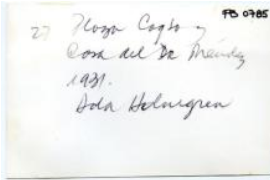 PB 0785
27 Plaza Cagto y
Casa del Dr Méndez
1931.
Ada Holmgren